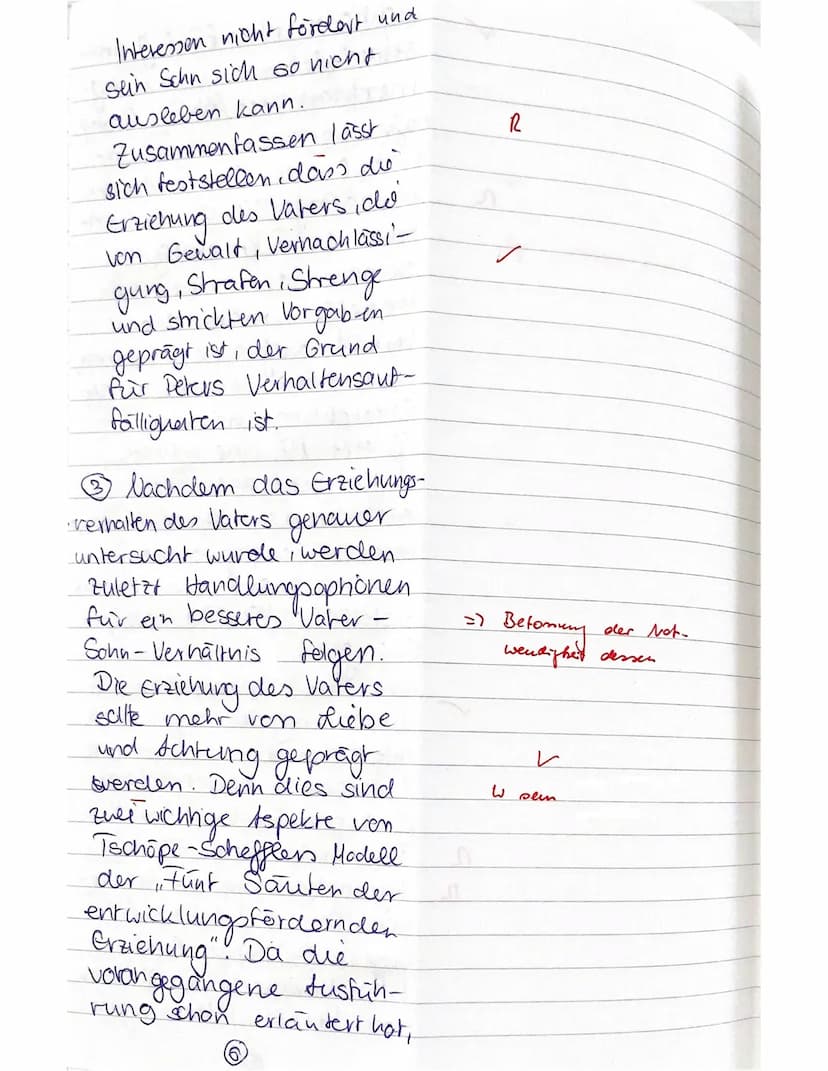 Interessen nicht fördert und
sein Sohn sich so nicht
ausleben kann.
Zusammenfassen lässt
R
sich feststellen, dass die
Erziehung des Vaters, die
von Gewalt, Vernachlässi-
✓
gung, Strafen, Strenge
und strickten Vorgaben
geprägt ist, der Grund
für Peters Verhaltensauf-
fälligkeiten ist.
③ Nachdem das Erziehungs-
verhalten des Vaters genauer
untersucht wurde, werden
zuletzt Handlungsoptionen
für ein besseres Vater-
=> Betonung der Not-
wendigkeit dessen
Sohn-Verhältnis folgen.
Die Erziehung des Vaters
sollte mehr von Liebe
und Achtung geprägt
✓
werden. Denn dies sind
W sein
zwei wichtige Aspekte von
Tschöpe-Schefflers Modell
der „Fünf Säulen der
entwicklungsfördernden
Erziehung". Da die
vorangegangene Ausfüh-
rung schon erläutert hat,
⑥